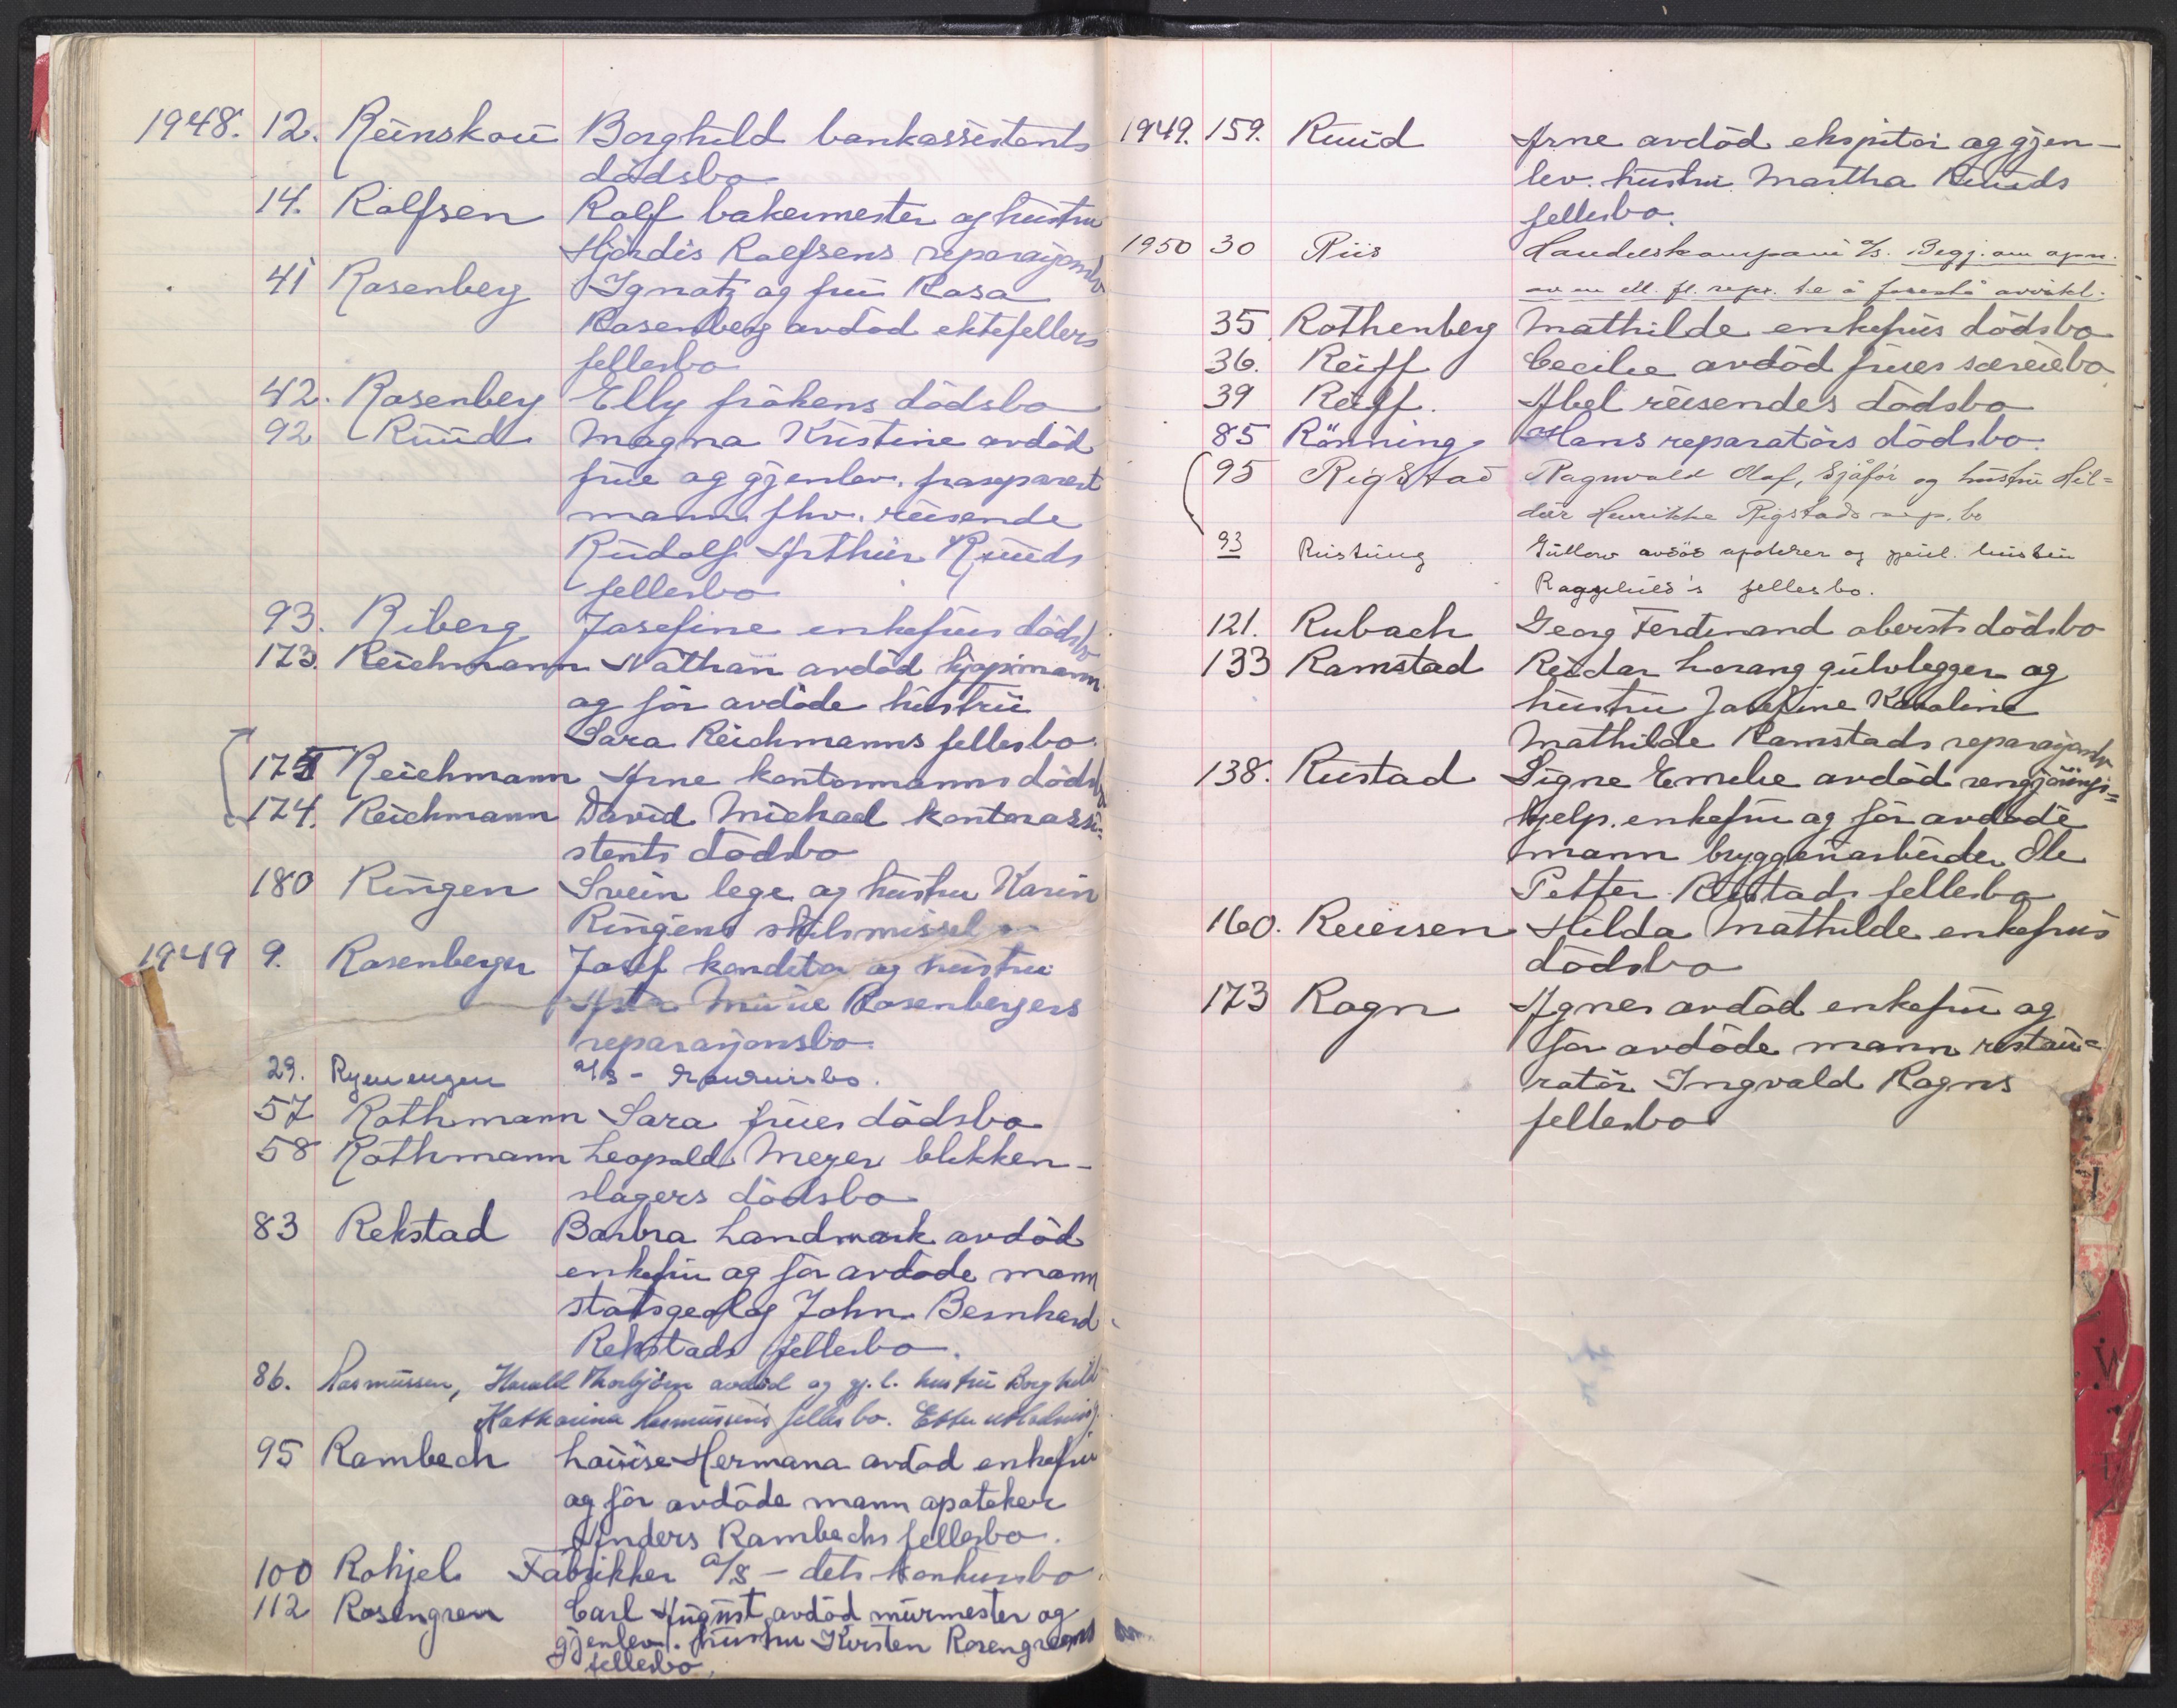 1948. 12. Reinskou Borghild bankassistents
dödsbo
14. Rolfsen Rolf bakermester og hustru
Hjördis Rolfsens separasjonsbo
41 Rosenberg Ignatz og fru Rosa
Rosenberg avdöd ektefellers
fellesbo
42. Rosenberg Elly frökens dödsbo
92 Ruud Magna Kristine avdöd
frue og gjenlev. fraseparert
mann fhv. reisende
Rudolf Arthur Ruuds
fellesbo
93. Riberg Josefine enkefrues dödsbo
173. Reichmann Nathan avdöd kjøpmann
og för avdöde hustru
Sara Reichmanns fellesbo.
175 Reichmann Arne kontormanns dödsbo
174. Reichmann David Michael kontorassi-
stents dödsbo
180 Ringen Svein lege og hustru Karin
Ringens skilsmissebo
1949 9. Rosenberger Josef konditor og hustru
Mine Rosenbergers
separasjonsbo
29. Ryenengen a/s - konkursbo.
57 Rothmann Sara frues dödsbo
58 Rothmann Leopold Meyer blikken-
slagers dödsbo
83 Rekstad Barbra Landmark avdöd
enkefru og för avdöde mann
statsgeolog John Bernhard
Rekstads fellesbo.
86. Rasmussen, Harald Thorbjörn avdöd og gj.l. hustru Borghild
Katharina Rasmussens fellesbo. Etter utlodning.
95 Rambech Louise Hermana avdöd enkefru
og för avdöde mann apoteker
Anders Rambechs fellesbo.
100 Rohjel Fabrikker A/S - dets konkursbo
112 Rosengren Carl August avdöd murmester og
gjenlev. hustru Kirsten Rosengrens
fellesbo.
1949. 159. Ruud Arne avdöd ekspeditör og gjen-
lev. hustru Martha Ruuds
fellesbo.
1950 30 Riis Handelskompani a/s. Begj. om opn.
av en ell. fl. repr. til å forestå avvikl.
35 Rothenberg Mathilde enkefrus dödsbo
36. Reiff Cecilie avdöd frues særeiebo
39 Reiff. Abel reisendes dödsbo
85 Rönning Hans reparatörs dödsbo.
95 Rigstad Ragnvald Olaf, Sjåför og hustru Hil=
dur Henrikke Rigstads sep. bo
93 Rustung Gullow avdöd apoteker og gjenl. hustru
Ragnhild's fellesbo.
121. Rubach Georg Ferdinand obersts dödsbo
133 Ramstad Reidar Lorang gulvlegger og
hustru Josefine Karoline
Mathilde Ramstads separasjonsbo
138. Rustad Signe Emelie avdöd rengjörings=
hjelp. enkefru og för avdöde
mann bryggeriarbeider Ole
Petter Rustads fellesbo
160. Reiersen Hilda Mathilde enkefrus
dödsbo
173 Rogn Agnes avdöd enkefru og
för avdöde mann restau=
ratör Ingvald Rogns
fellesbo